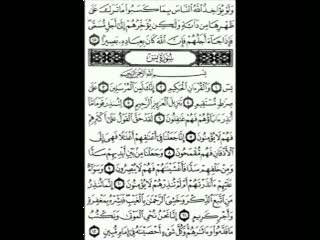 وَلَوْ يُؤَاخِذُ ٱللَّهُ ٱلنَّاسَ بِمَا كَسَبُوا۟ مَا تَرَكَ عَلَىٰ
ظَهْرِهَا مِن دَآبَّةٍ وَلَـٰكِن يُؤَخِّرُهُمْ إِلَىٰٓ أَجَلٍ مُّسَمًّى
فَإِذَا جَآءَ أَجَلُهُمْ فَإِنَّ ٱللَّهَ كَانَ بِعِبَادِهِۦ بَصِيرًۢا
سُورَةُ يسٓ
بِسْمِ ٱللَّهِ ٱلرَّحْمَـٰنِ ٱلرَّحِيمِ
يسٓ وَٱلْقُرْءَانِ ٱلْحَكِيمِ إِنَّكَ لَمِنَ ٱلْمُرْسَلِينَ عَلَىٰ
صِرَٰطٍ مُّسْتَقِيمٍ تَنزِيلَ ٱلْعَزِيزِ ٱلرَّحِيمِ لِتُنذِرَ قَوْمًا مَّآ
أُنذِرَ ءَابَآؤُهُمْ فَهُمْ غَـٰفِلُونَ لَقَدْ حَقَّ ٱلْقَوْلُ عَلَىٰٓ أَكْثَرِهِمْ
فَهُمْ لَا يُؤْمِنُونَ إِنَّا جَعَلْنَا فِىٓ أَعْنَـٰقِهِمْ أَغْلَـٰلًا فَهِىَ إِلَى
ٱلْأَذْقَانِ فَهُم مُّقْمَحُونَ وَجَعَلْنَا مِنۢ بَيْنِ أَيْدِيهِمْ سَدًّا
وَمِنْ خَلْفِهِمْ سَدًّا فَأَغْشَيْنَـٰهُمْ فَهُمْ لَا يُبْصِرُونَ وَسَوَآءٌ
عَلَيْهِمْ ءَأَنذَرْتَهُمْ أَمْ لَمْ تُنذِرْهُمْ لَا يُؤْمِنُونَ إِنَّمَا تُنذِرُ
مَنِ ٱتَّبَعَ ٱلذِّكْرَ وَخَشِىَ ٱلرَّحْمَـٰنَ بِٱلْغَيْبِ فَبَشِّرْهُ بِمَغْفِرَةٍ
وَأَجْرٍ كَرِيمٍ إِنَّا نَحْنُ نُحْىِ ٱلْمَوْتَىٰ وَنَكْتُبُ
مَا قَدَّمُوا۟ وَءَاثَـٰرَهُمْ وَكُلَّ شَىْءٍ أَحْصَيْنَـٰهُ فِىٓ إِمَامٍ مُّبِينٍ